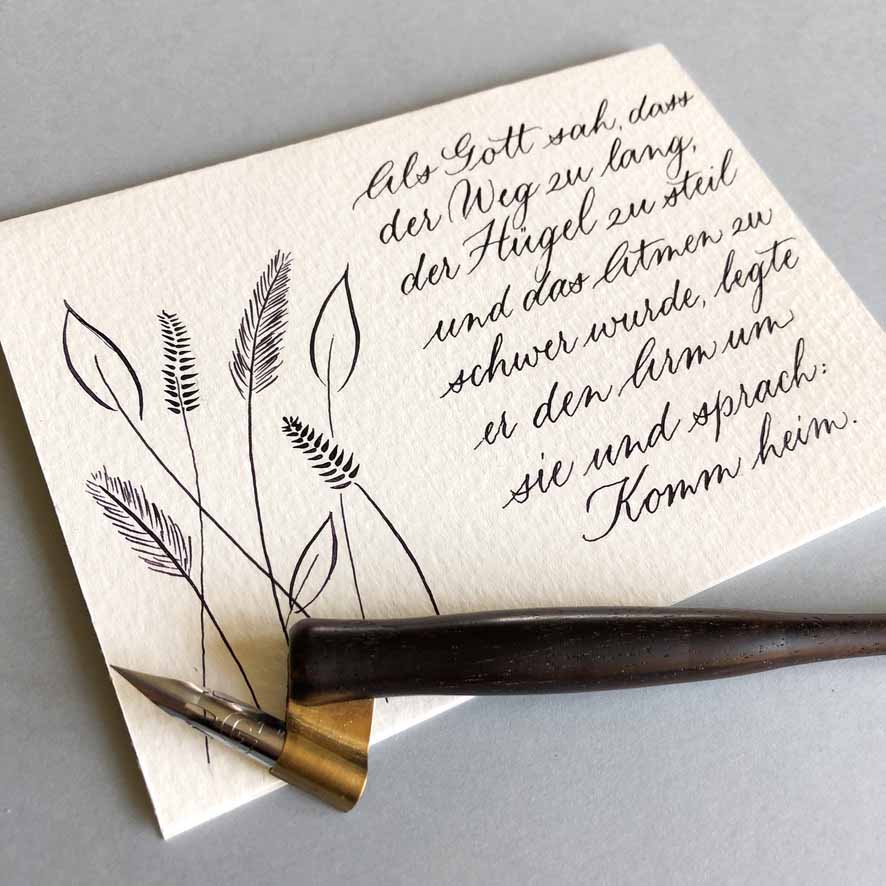 Als Gott sah, dass
der Weg zu lang,
der Hügel zu steil
und das Atmen zu
schwer wurde, legte
er den Arm um
sie und sprach:
Komm heim.